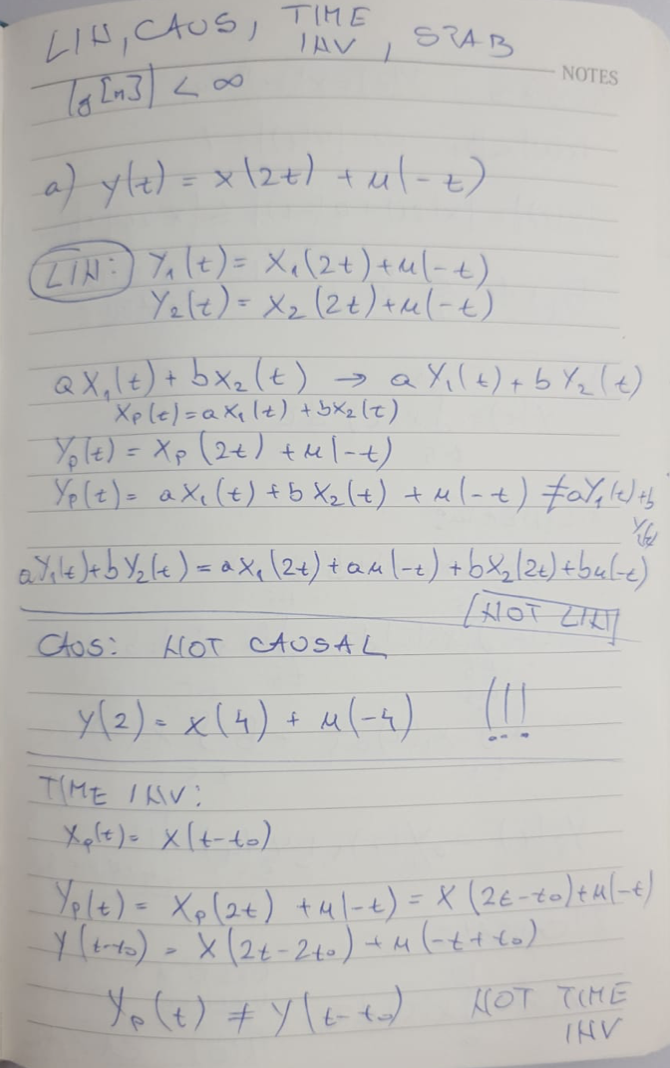 LIN, CAUS, TIME INV, STAB
NOTES
|y[n]| < ∞
a) y(t) = x(2t) + u(-t)
LIN: Y₁(t) = X₁(2t) + u(-t)
Y₂(t) = X₂(2t) + u(-t)
aX₁(t) + bX₂(t) → aY₁(t) + bY₂(t)
Xp(t) = aX₁(t) + bX₂(t)
Yp(t) = Xp(2t) + u(-t)
Yp(t) = aX₁(t) + bX₂(t) + u(-t) ≠ aY₁(t) + b
aY₁(t) + bY₂(t) = aX₁(2t) + au(-t) + bX₂(2t) + bu(-t)
NOT LIN
CAUS: NOT CAUSAL
Y(2) = X(4) + u(-4) !!!
TIME INV:
Xp(t) = X(t-t₀)
Yp(t) = Xp(2t) + u(-t) = X(2t-t₀) + u(-t)
Y(t-t₀) = X(2t-2t₀) + u(-t+t₀)
Yp(t) ≠ Y(t-t₀) NOT TIME INV